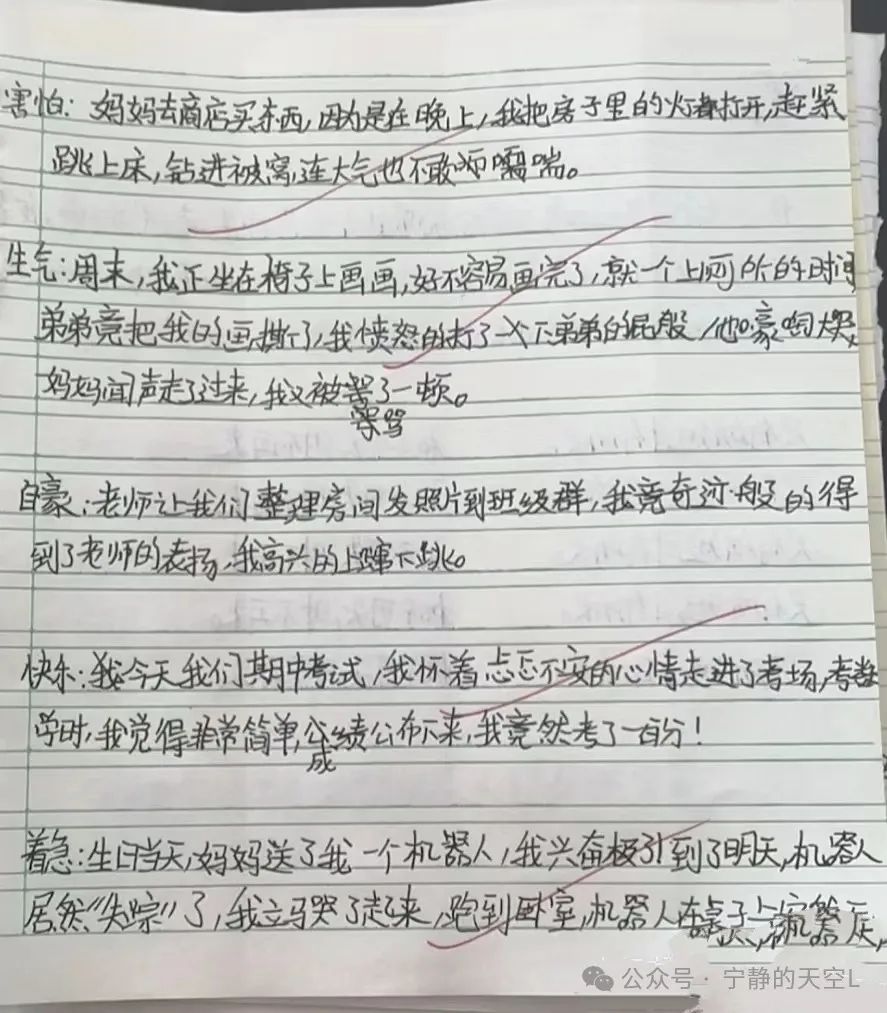 害怕：妈妈去商店买东西，因为是在晚上，我把房子里的灯都打开，赶紧
跳上床，钻进被窝，连大气也不敢喘。
生气：周末，我正坐在椅子上画画，好不容易画完了，就一个上厕所的时间
弟弟竟把我的画撕了，我愤怒的打了一下弟弟的屁股，他嚎啕大哭，
妈妈闻声走了过来，我又被骂了一顿。
自豪：老师让我们整理房间发照片到班级群，我竟奇迹般的得
到了老师的表扬，我高兴的上蹿下跳。
快乐：我今天我们期中考试，我怀着忐忑不安的心情走进了考场，考数
学时，我觉得非常简单，成绩公布下来，我竟然考了一百分！
着急：生日当天，妈妈送了我一个机器人，我兴奋极了！到了明天，机器人
居然“失踪”了，我立马哭了起来，跑到卧室，机器人在桌子上
公众号·宁静的天空L